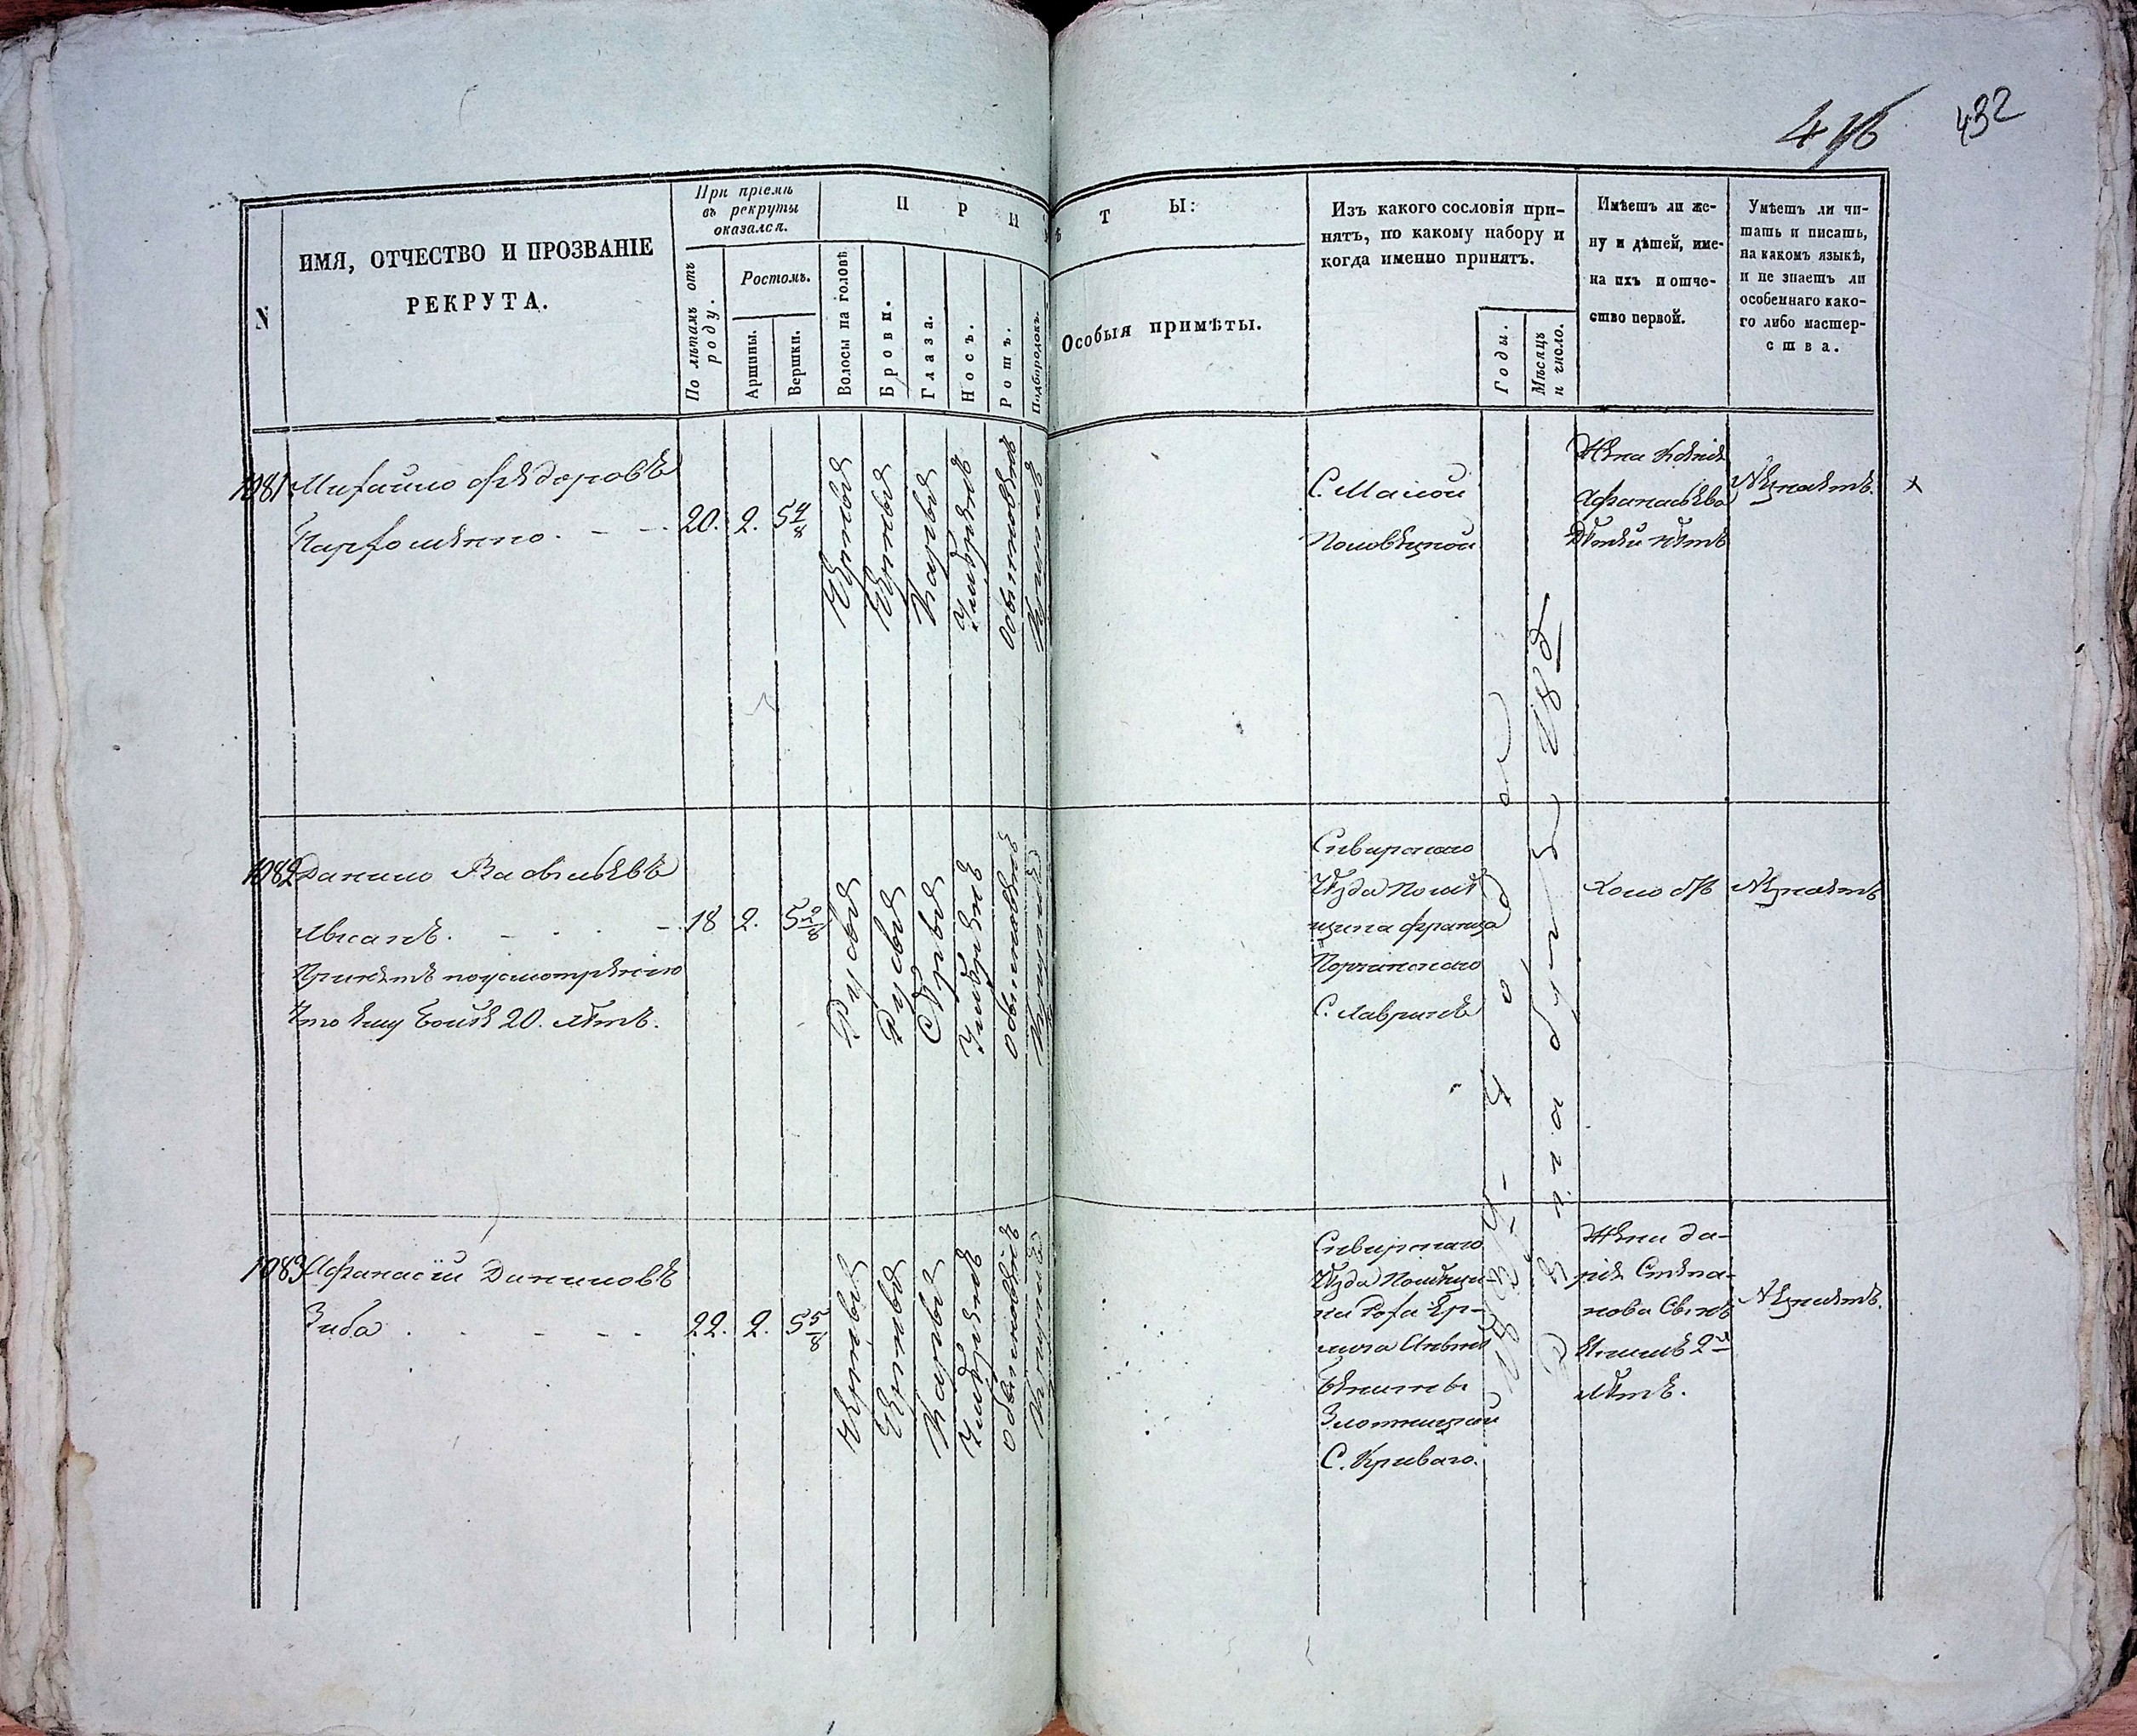 432
N
ИМЯ, ОТЧЕСТВО И ПРОЗВАНІЕ
РЕКРУТА.
При пріемѣ
въ рекруты
оказался.
По лѣтамъ отъ
роду.
Ростомъ.
Аршины.
Вершки.
П Р И М Ѣ Т Ы:
Волосы на головѣ
Брови.
Глаза.
Носъ.
Ротъ.
Подбородокъ.
Особыя примѣты.
Изъ какого сословія при-
нятъ, по какому набору и
когда именно принятъ.
Годы.
Мѣсяцъ
и число.
Имѣетъ ли же-
ну и дѣтей, име-
на ихъ и отче-
ство первой.
Умѣетъ ли чи-
тать и писать,
на какомъ языкѣ,
и не знаетъ ли
особеннаго како-
го либо мастер-
ства.
1081
Михайло Федоровъ
Пархоменко.
20.
2.
5 4/8
Черныя
Черныя
Карыя
Умѣренъ
Обыкновенъ
Кругловъ
С. Малой
Половецкой
Жена
Афанасьева
Дѣтей нѣтъ
Незнаетъ.
1082
Данило Васильевъ
Лысакъ.
Принятъ поусмотренію
Что ему болѣе 20. лѣтъ.
18
2.
5 2/8
Русыя
Русыя
Сѣрыя
Умѣренъ
Обыкновенъ
Сквирскаго
Уѣзда Помѣ
щика Франца
С. Лавриковъ
Холостъ
Незнаетъ
1083
Афанасій Даниловъ
Зиба
22.
2.
5 5/8
Черныя
Черныя
Карыя
Умѣренъ
Обыкновенъ
Сквирскаго
Уѣзда Помѣщи-
С. Криваго.
Жена Да-
рія Степа-
нова Сынъ
2й
лѣтъ.
Незнаетъ.
года
Декабря 18 д